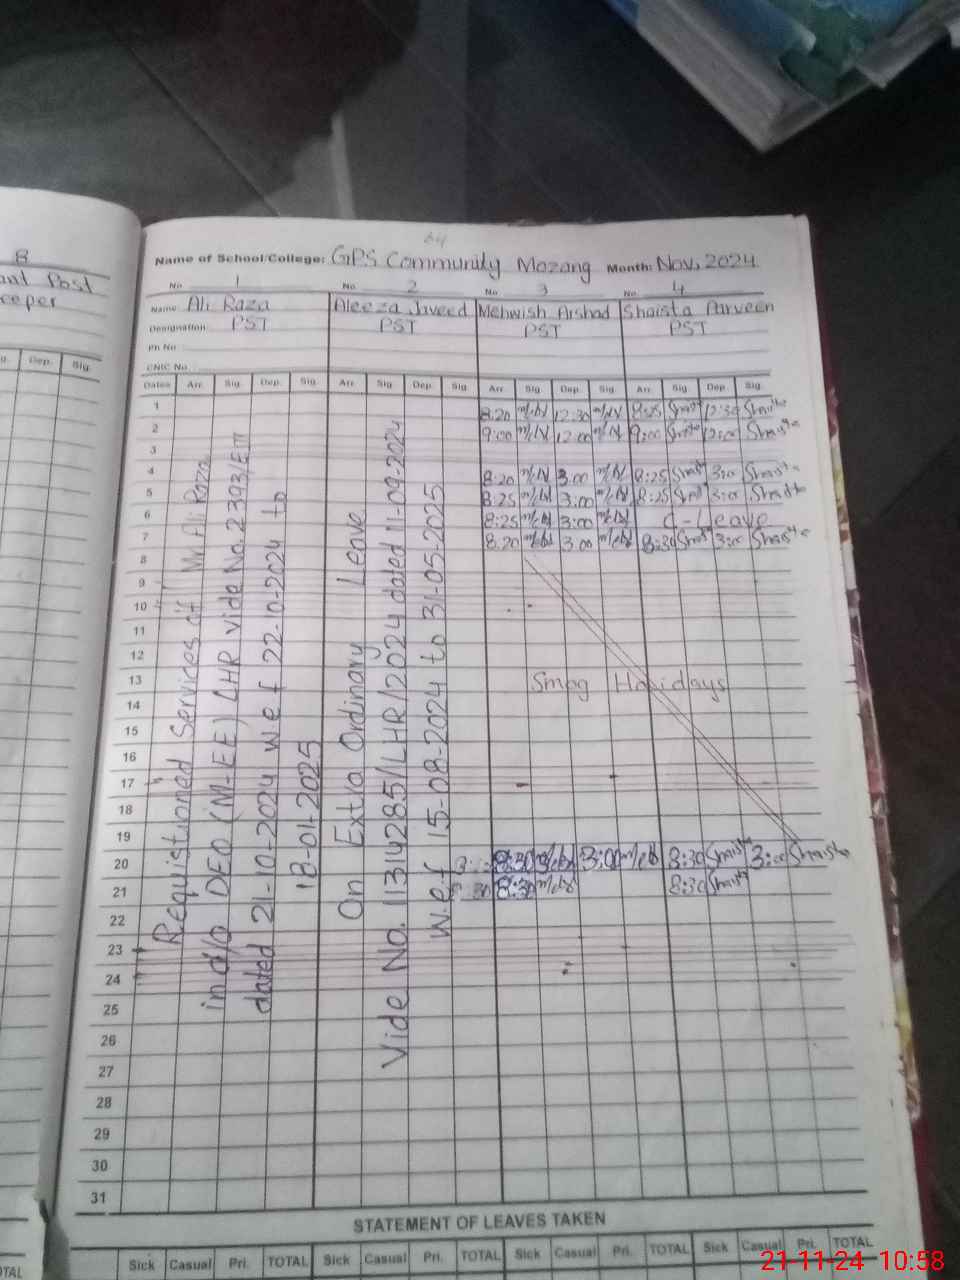 8
Post
64
Name of School/College: GPS Community Mozang Month: Nov, 2024
No. 1 No. 2 No. 3 No. 4
Name: Ali Raza Aleeza Javeed Mehwish Arshad Shaista Parveen
Designation: PST PST PST PST
Ph No.
CNIC No.
Dep. Sig.
Dates Arr. Sig. Dep. Sig. Arr. Sig. Dep. Sig. Arr. Sig. Dep. Sig. Arr. Sig. Dep. Sig.
1 8:20 12:30 8:25 12:30
2 9:00 12:00 9:00 12:00
3
4 8:20 3:00 8:25 3:00
5 8:25 3:00 8:25 3:00
6 8:25 3:00 C-Leave
7 8:20 3:00 8:30 3:00
8
9
10
11
12
13 Smog Holidays
14
15
16
17
18
19
20 8:30 3:00 8:30 3:00
21 8:30 8:30
22
23
24
25
26
27
28
29
30
31
Requistioned Services of Mr Ali Raza
in o/o DEO (M-EE) LHR vide No. 2393/E
dated 21-10-2024 w e f 22-10-2024 to
18-01-2025
On Extra Ordinary Leave
Vide No. 11314285/LHR/2024 dated 11-09-2024
w.e.f 15-08-2024 to 31-05-2025
STATEMENT OF LEAVES TAKEN
TOTAL Sick Casual Pri. TOTAL Sick Casual Pri. TOTAL Sick Casual Pri. TOTAL Sick Casual Pri. TOTAL
21-11-24 10:58